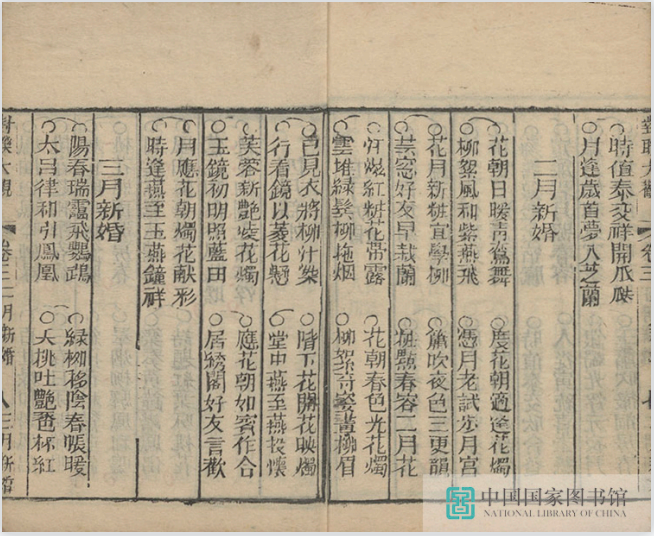 卷三
時值泰交祥開瓜瓞
月逢歲首夢入芝蘭
二月新婚
花朝日暖青鸞舞 度花朝適逢花燭
柳絮風和紫燕飛 憑月老試步月宮
花月新粧宜學柳 簫吹夜色三更韻
芸窓好友早栽蘭 梅點春容二月花
汗凝紅粧花帶露 花朝春色光花燭
雲堆緑鬓柳拖烟 柳絮奇姿畫柳眉
已見衣將柳汁染 階下花開花映燭
行看鏡以菱花懸 堂中燕至燕投懷
芙蓉新艷裝花燭 應花朝如賓作合
玉鏡初明照藍田 居綉閣好友言歡
月應花朝燭花献彩
時逢燕至玉燕鐘祥
三月新婚
陽春瑞靄飛鸚鵡 緑柳移陰春帳暖
太呂律和引鳳凰 夭桃吐艷杯紅
對聯大觀 卷三 二月新婚 八 三月新婚
中国国家图书馆
NATIONAL LIBRARY OF CHINA